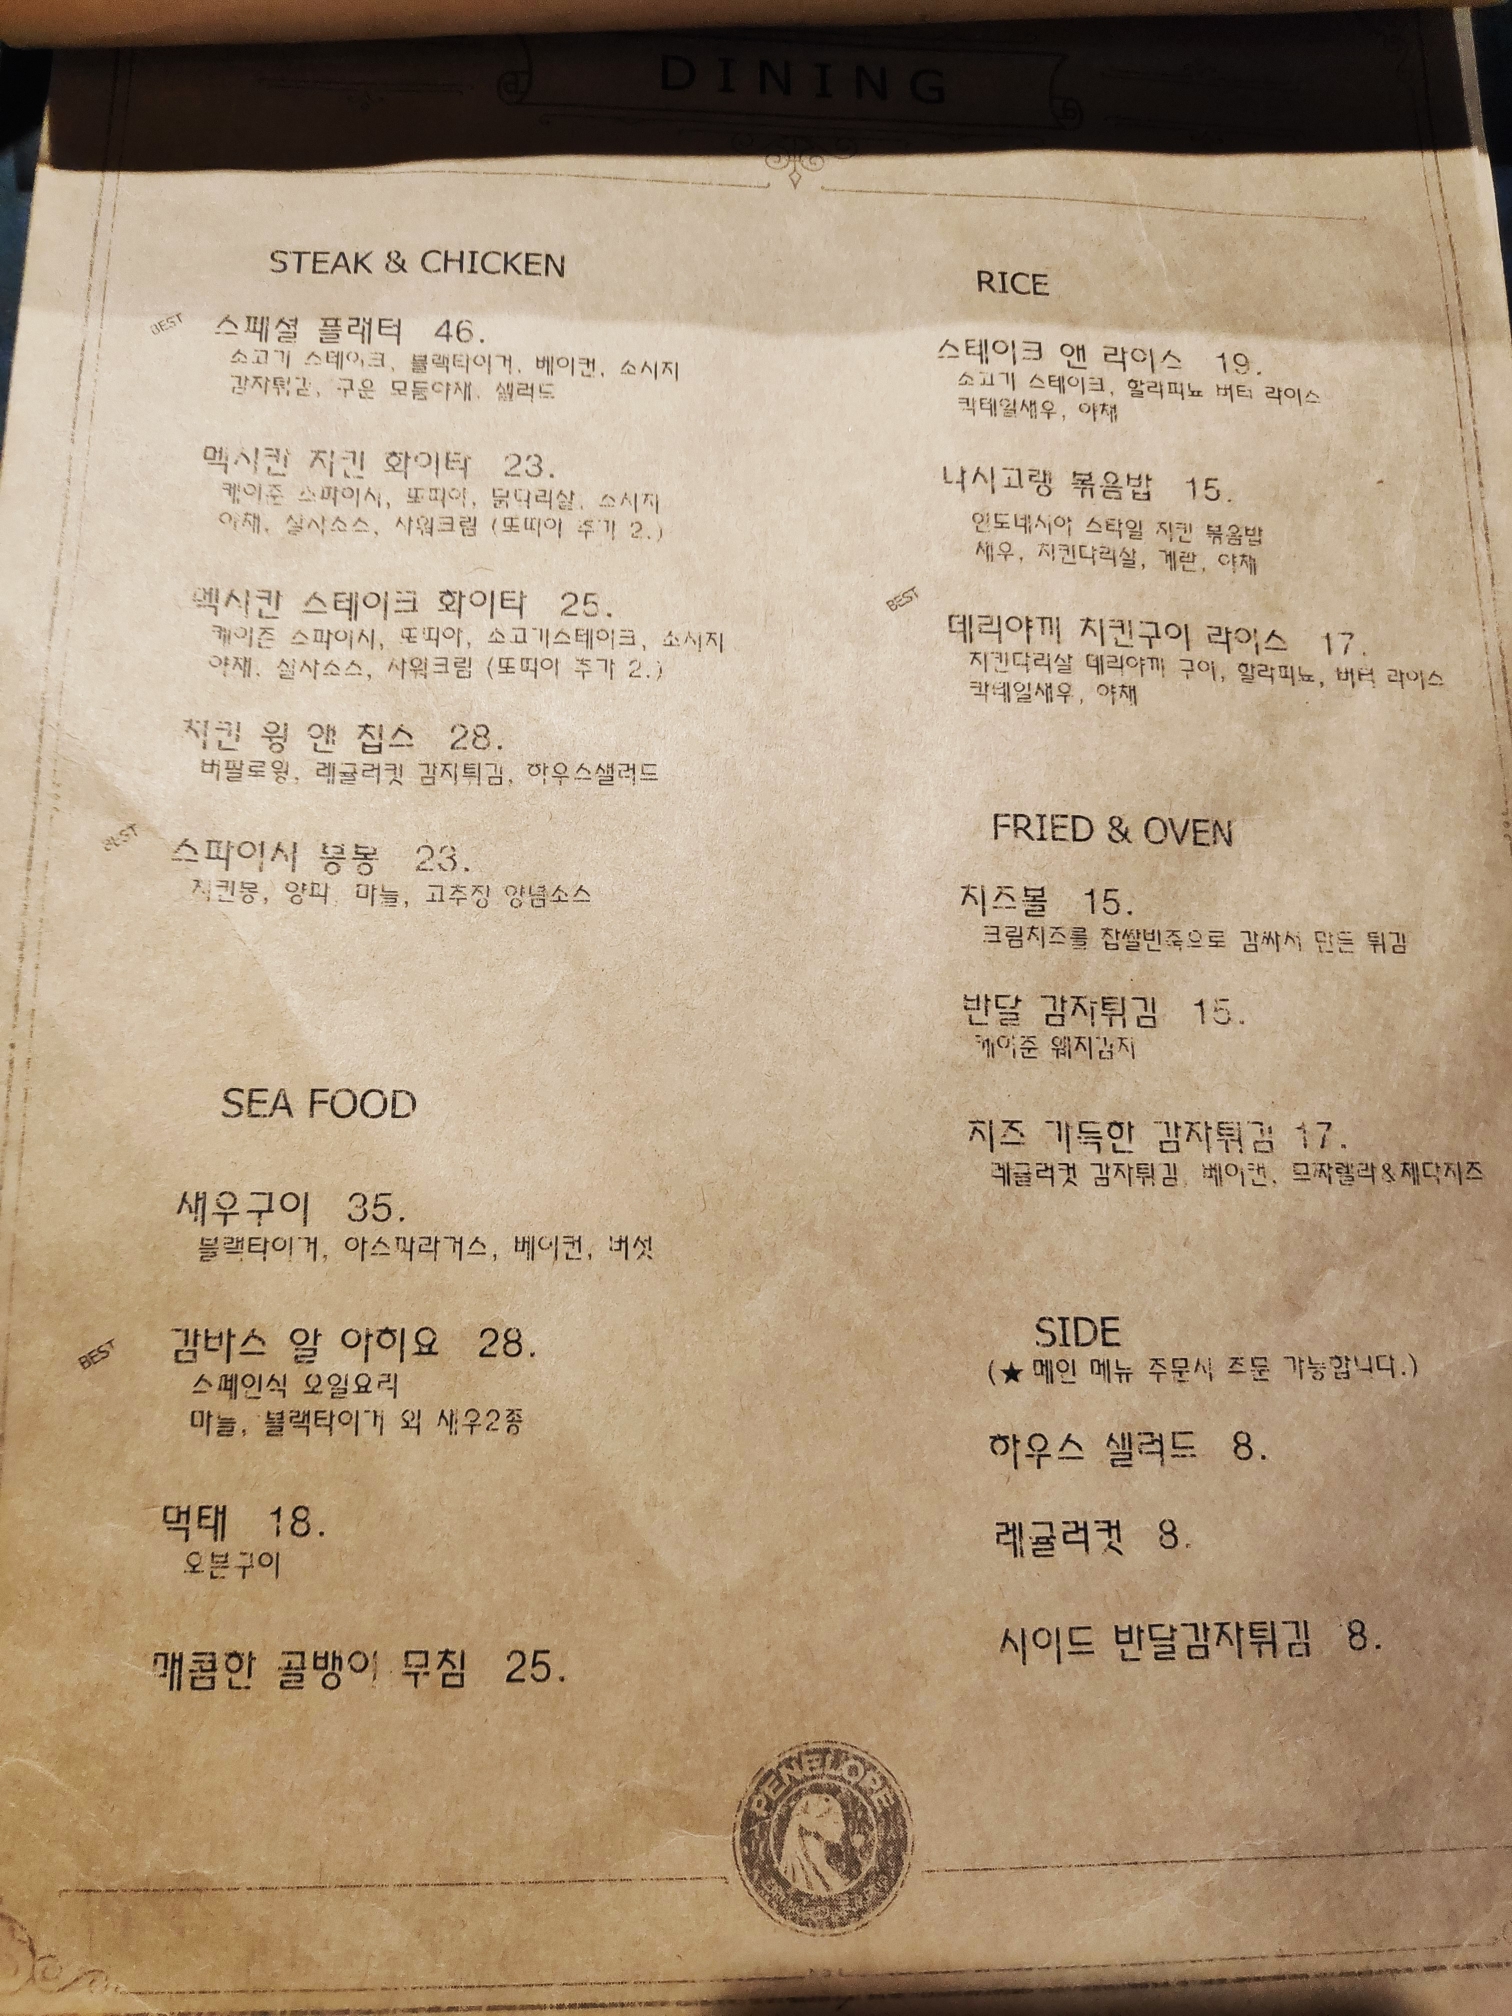 DINING
STEAK & CHICKEN
BEST
스페셜 플래터 46.
소고기 스테이크, 블랙타이거, 베이컨, 소시지
감자튀김, 구운 모둠야채, 샐러드
멕시칸 치킨 화이타 23.
케이준 스파이시, 또띠아, 닭다리살, 소시지
야채, 살사소스, 사워크림 (또띠아 추가 2.)
멕시칸 스테이크 화이타 25.
케이준 스파이시, 또띠아, 소고기스테이크, 소시지
야채, 살사소스, 사워크림 (또띠아 추가 2.)
치킨 윙 앤 칩스 28.
버팔로윙, 레귤러컷 감자튀김, 하우스샐러드
BEST
스파이시 봉봉 23.
치킨봉, 양파, 마늘, 고추장 양념소스
SEA FOOD
새우구이 35.
블랙타이거, 아스파라거스, 베이컨, 버섯
BEST
감바스 알 아히요 28.
스페인식 오일요리
마늘, 블랙타이거 외 새우2종
먹태 18.
오븐구이
매콤한 골뱅이 무침 25.
RICE
스테이크 앤 라이스 19.
소고기 스테이크, 할라피뇨 버터 라이스
칵테일새우, 야채
나시고랭 볶음밥 15.
인도네시아 스타일 치킨 볶음밥
새우, 치킨다리살, 계란, 야채
BEST
데리야끼 치킨구이 라이스 17.
치킨다리살 데리야끼 구이, 할라피뇨, 버터 라이스
칵테일새우, 야채
FRIED & OVEN
치즈볼 15.
크림치즈를 찹쌀반죽으로 감싸서 만든 튀김
반달 감자튀김 15.
케이준 웨지감자
치즈 가득한 감자튀김 17.
레귤러컷 감자튀김, 베이컨, 모짜렐라&체다치즈
SIDE
(★ 메인 메뉴 주문시 주문 가능합니다.)
하우스 샐러드 8.
레귤러컷 8.
사이드 반달감자튀김 8.
PENELOPE